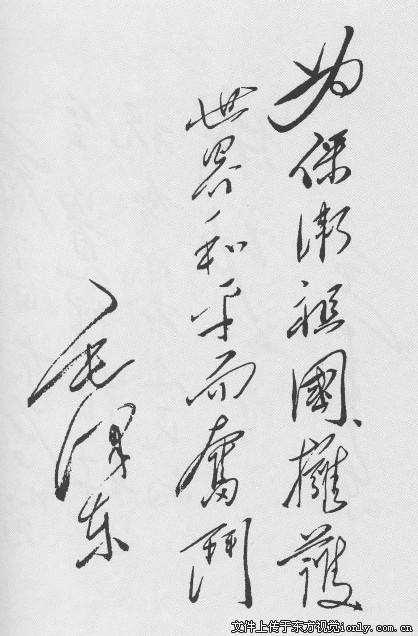 为保衛祖國、擁護
世界和平而奮鬥
毛泽东
文件上传于东方视觉ionly.com.cn